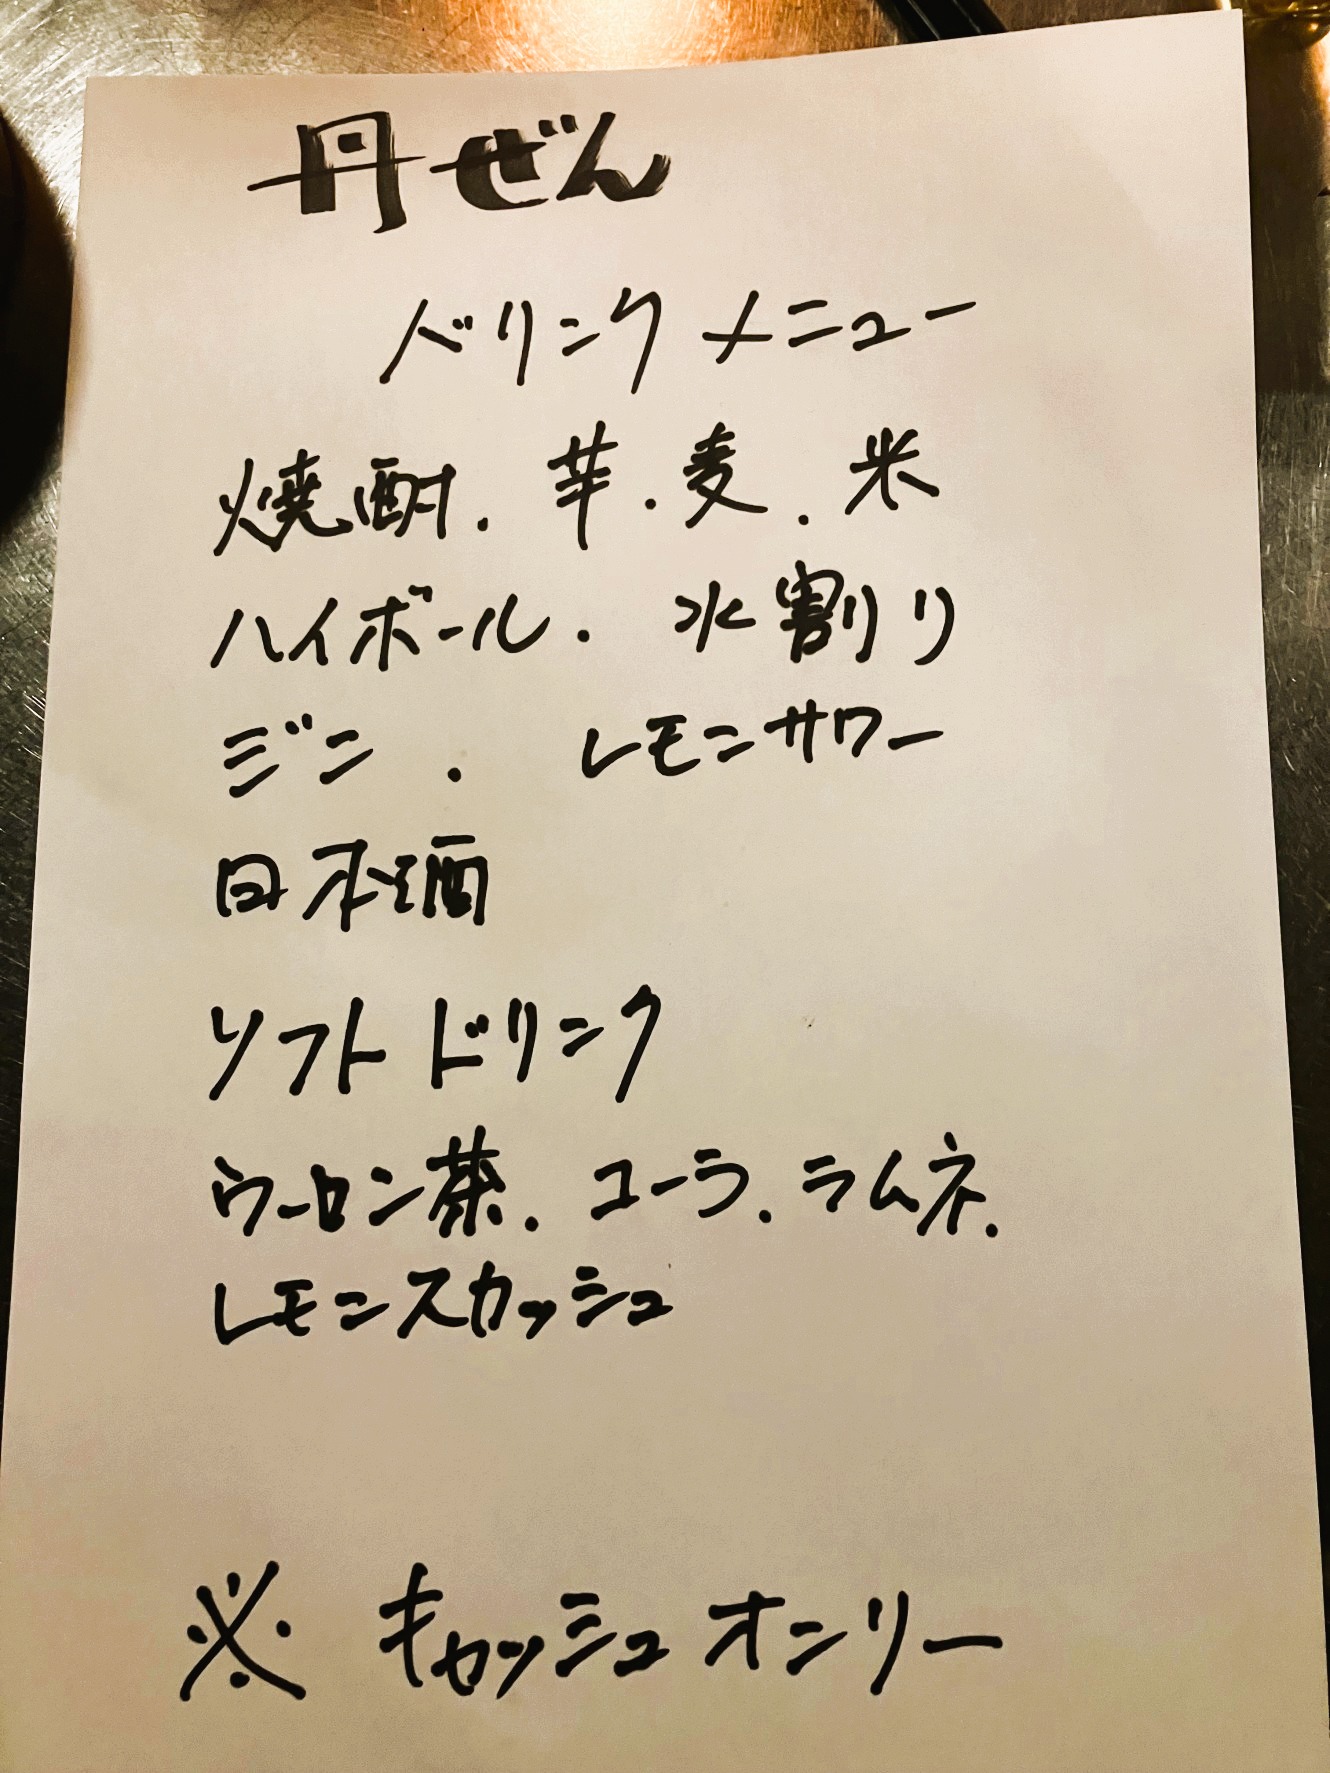 丹ぜん
ドリンクメニュー
焼酎.芋.麦.米
ハイボール.水割り
ジン.レモンサワー
日本酒
ソフトドリンク
ウーロン茶.コーラ.ラムネ.
レモンスカッシュ
※ キャッシュオンリー